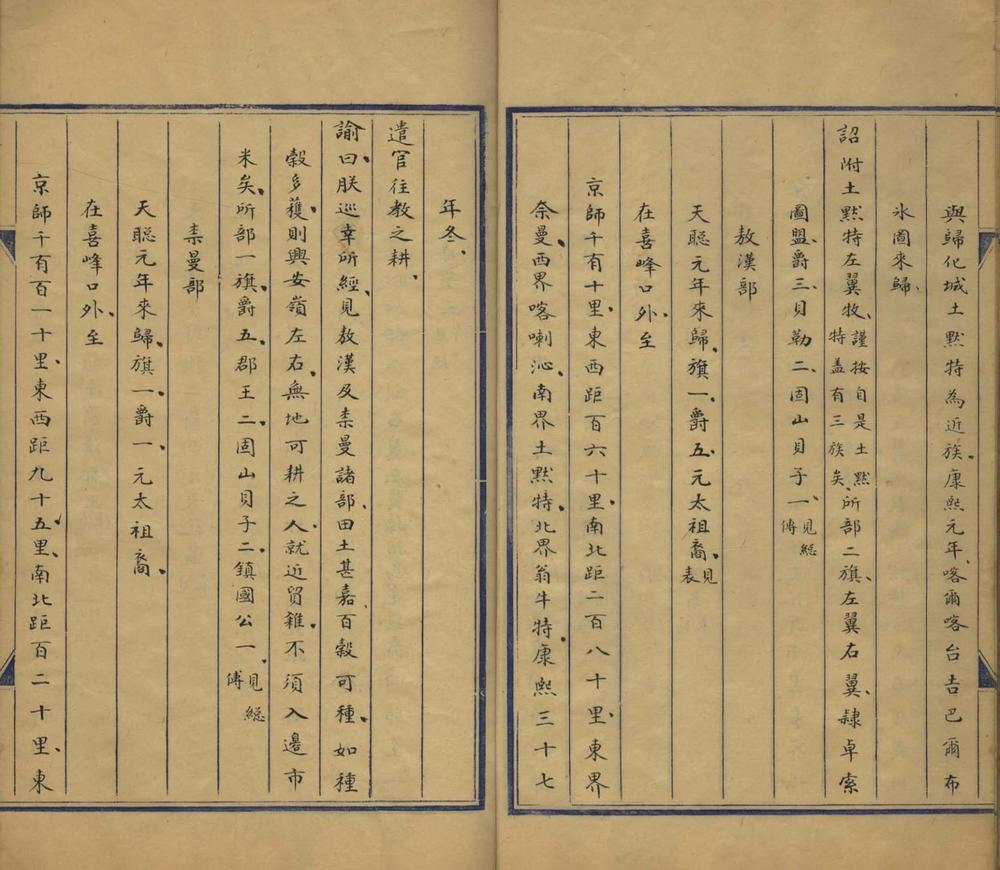 與歸化城土黙特為近族康熙元年喀爾喀台吉巴爾布
氷圖來歸
詔附土黙特左翼牧謹按自是土黙特盖有三族矣所部二旗左翼右翼隷卓索
圖盟爵三貝勒二固山貝子一見總傳
敖漢部
天聡元年來歸旗一爵五元太祖裔見表
在喜峰口外至
京師千有十里東西距百六十里南北距二百八十里東界
奈曼西界喀喇沁南界土黙特北界翁牛特康熙三十七
年冬
遣官徃教之耕
諭曰朕巡幸所經見敖漢及柰曼諸部田土甚嘉百穀可種如種
穀多穫則興安嶺左右無地可耕之人就近貿糴不須入邊市
米矣所部一旗爵五郡王二固山貝子二鎮國公一見總傳
柰曼部
天聡元年來歸旗一爵一元太祖裔
在喜峰口外至
京師千有百一十里東西距九十五里南北距百二十里東